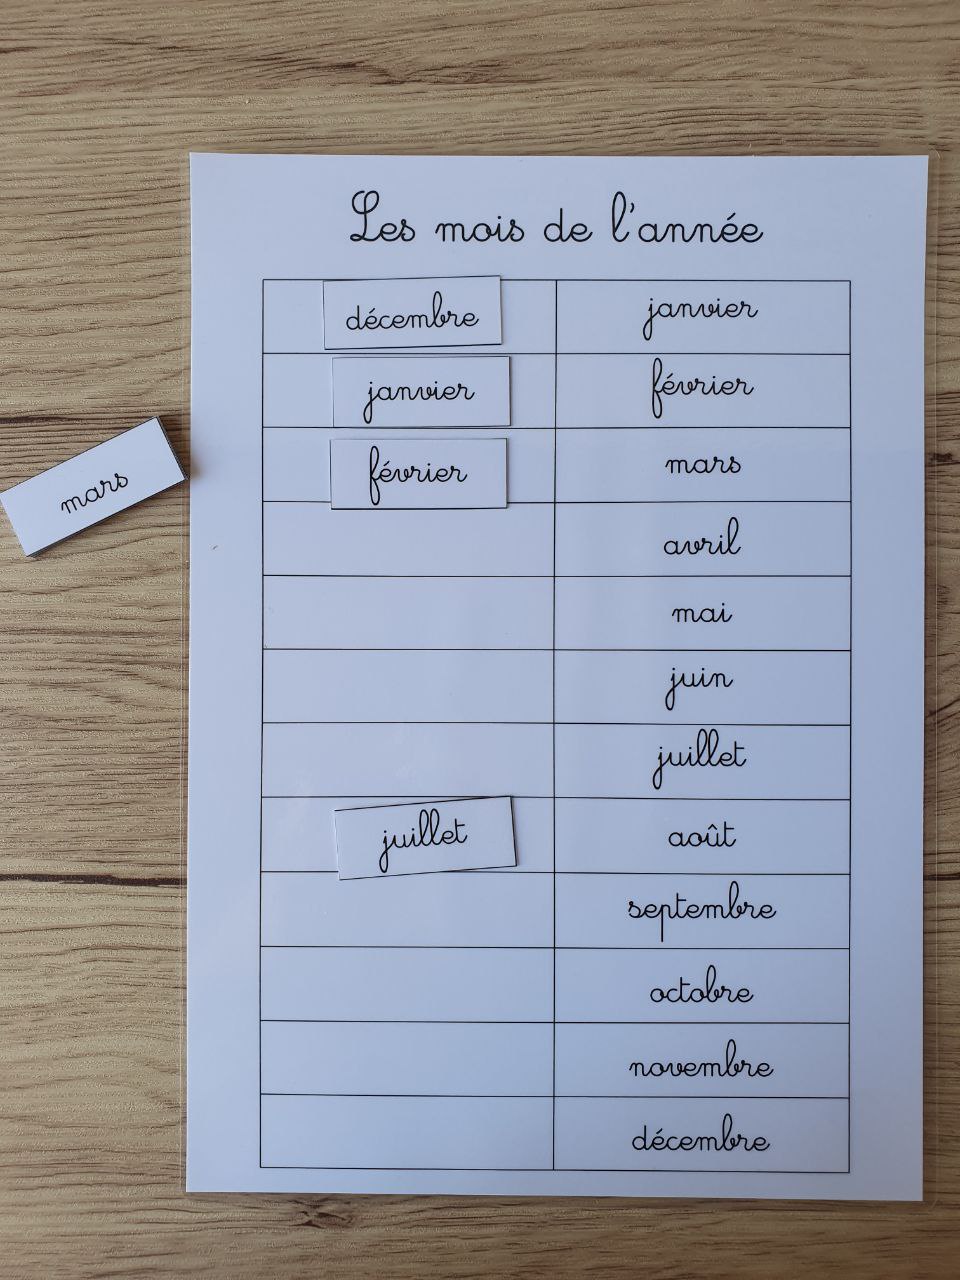 Les mois de l'année
décembre janvier
janvier février
février mars
mars
avril
mai
juin
juillet
juillet août
septembre
octobre
novembre
décembre